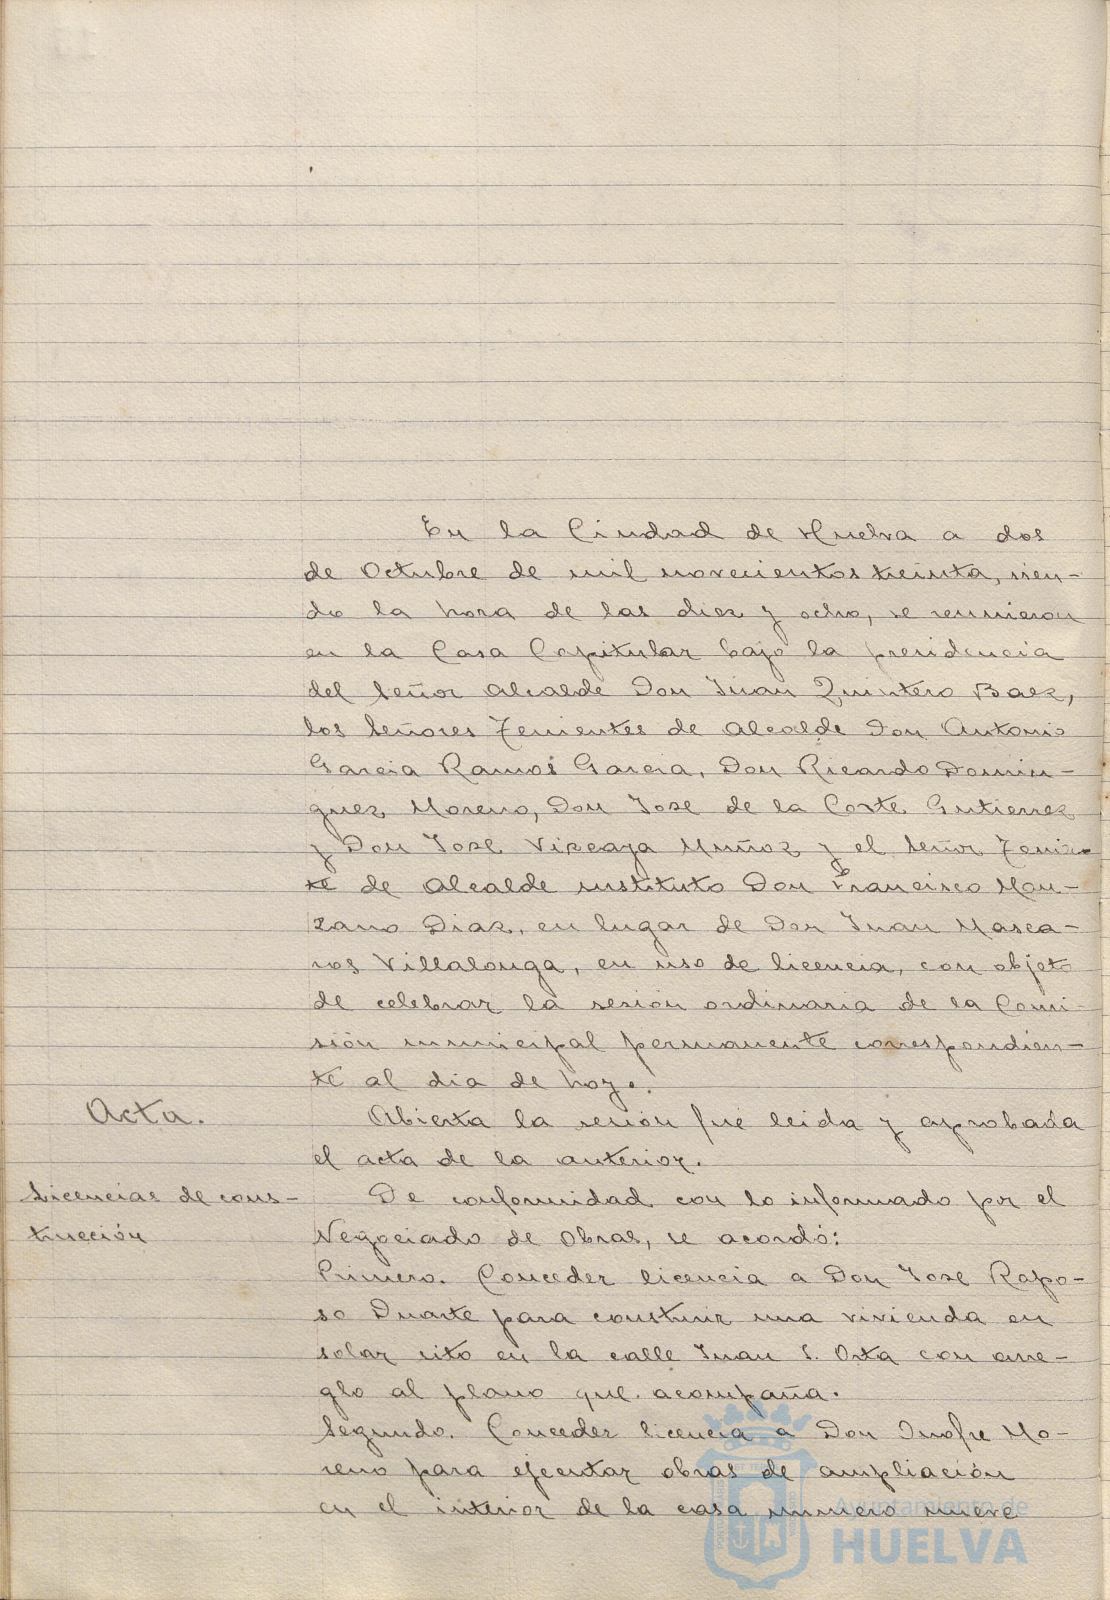 En la Ciudad de Huelva a dos
de Octubre de mil novecientos treinta, sien-
do la hora de las diez y ocho, se reunieron
en la Casa Capitular bajo la presidencia
del Señor Alcalde Don Juan Quintero Baez,
los Señores Tenientes de Alcalde Don Antonio
Garcia Ramos Garcia, Don Ricardo Domin-
guez Moreno, Don Jose de la Corte Gutierrez
y Don Jose Vizcaya Muñoz y el Señor Tenien-
te de Alcalde sustituto Don Francisco Man-
zano Diaz, en lugar de Don Juan Masca-
ros Villalonga, en uso de licencia, con objeto
de celebrar la sesión ordinaria de la Comi-
sión municipal permanente correspondien-
te al dia de hoy.
Acta.
Abierta la sesión fué leida y aprobada
el acta de la anterior.
Licencias de cons-
trucción
De conformidad con lo informado por el
Negociado de Obras, se acordó:
Primero. Conceder licencia a Don Jose Rapo-
so Duarte para construir una vivienda en
solar sito en la calle Juan S. Orta con arre-
glo al plano que acompaña.
Segundo. Conceder licencia a Don Onofre Mo-
reno para ejecutar obras de ampliación
en el interior de la casa numero nueve
Ayuntamiento de
HUELVA